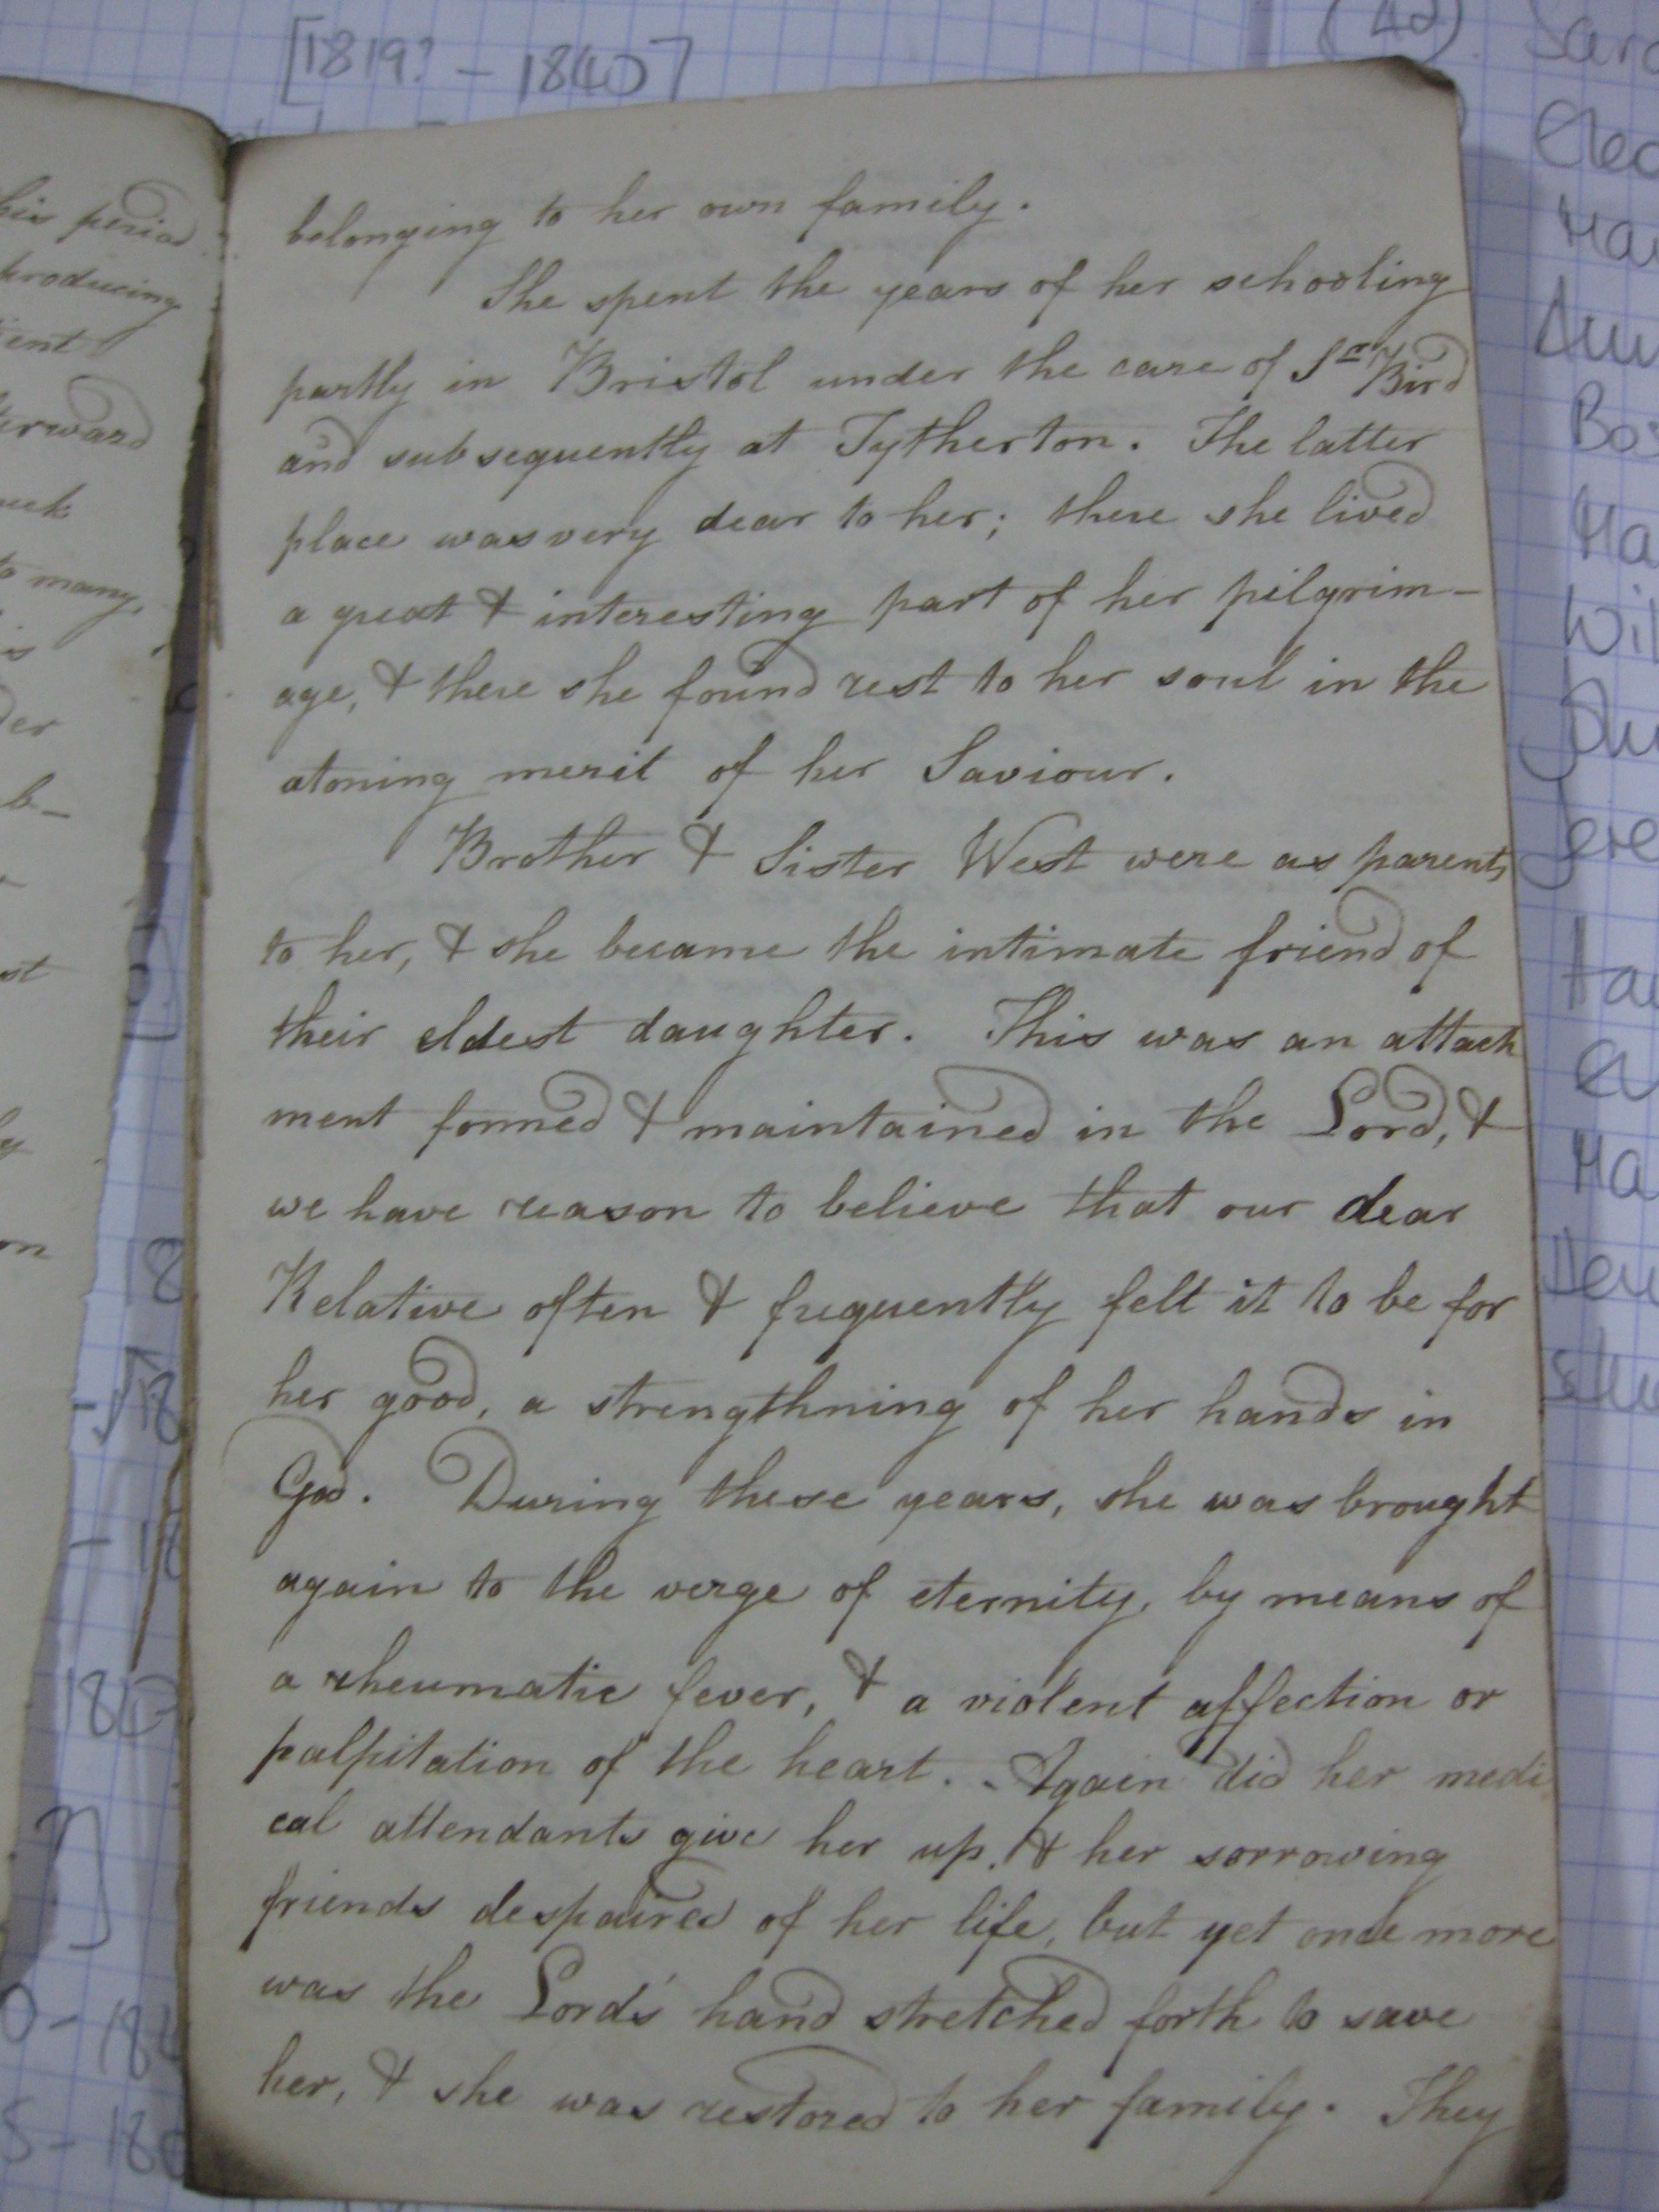 [1819? - 1840]
belonging to her own family.
She spent the years of her schooling
partly in Bristol under the care of Sr. Bird
and subsequently at Tytherton. The latter
place was very dear to her; there she lived
a great & interesting part of her pilgrim-
age, & there she found rest to her soul in the
atoning merit of her Saviour.
Brother & Sister West were as parents
to her, & she became the intimate friend of
their eldest daughter. This was an attach
ment formed & maintained in the Lord, &
we have reason to believe that our dear
Relative often & frequently felt it to be for
her good, a strengthning of her hands in
God. During these years, she was brought
again to the verge of eternity, by means of
a rheumatic fever, & a violent affection or
palpitation of the heart. Again did her medi
cal attendants give her up, & her sorrowing
friends despaired of her life, but yet once more
was the Lord's hand stretched forth to save
her, & she was restored to her family. They